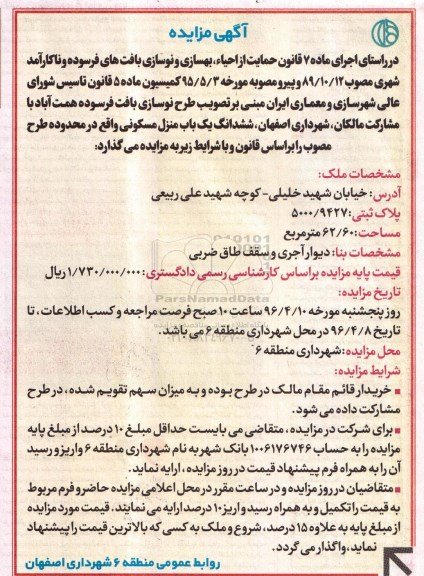 آگهی مزایده
در راستای اجرای ماده ۷ قانون حمایت از احیاء، بهسازی و نوسازی بافت های فرسوده و ناکارآمد
شهری مصوب ۸۹/۱۰/۱۲ و پیرو مصوبه مورخه ۹۵/۵/۳ کمیسیون ماده ۵ قانون تاسیس شورای
عالی شهرسازی و معماری ایران مبنی بر تصویب طرح نوسازی بافت فرسوده همت آباد با
مشارکت مالکان، شهرداری اصفهان، ششدانگ یک باب منزل مسکونی واقع در محدوده طرح
مصوب را براساس قانون و با شرایط زیر به مزایده می گذارد:
مشخصات ملک:
آدرس: خیابان شهید خلیلی- کوچه شهید علی ربیعی
پلاک ثبتی: ۵۰۰۰/۹۴۲۷
مساحت: ۶۲/۶۰ مترمربع
مشخصات بنا: دیوار آجری و سقف طاق ضربی
قیمت پایه مزایده براساس کارشناسی رسمی دادگستری: ۱/۷۳۰/۰۰۰/۰۰۰ ریال
ParsNamadData
تاریخ مزایده:
روز پنجشنبه مورخه ۹۶/۴/۱۰ ساعت ۱۰ صبح فرصت مراجعه و کسب اطلاعات، تا
تاریخ ۹۶/۴/۸ در محل شهرداری منطقه ۶ می باشد.
محل مزایده: شهرداری منطقه ۶
شرایط مزایده:
▪ خریدار قائم مقام مالک در طرح بوده و به میزان سهم تقویم شده، در طرح
مشارکت داده می شود.
▪ برای شرکت در مزایده، متقاضی می بایست حداقل مبلغ ۱۰ درصد از مبلغ پایه
مزایده را به حساب ۱۰۰۶۱۷۶۷۴۶ بانک شهر به نام شهرداری منطقه ۶ واریز و رسید
آن را به همراه فرم پیشنهاد قیمت در روز مزایده، ارایه نماید.
▪ متقاضیان در روز مزایده و در ساعت مقرر در محل اعلامی مزایده حاضر و فرم مربوط
به قیمت را تکمیل و به همراه رسید واریز ۱۰ درصد ارایه می نمایند. قیمت مورد مزایده
از مبلغ پایه به علاوه ۱۵ درصد، شروع و ملک به کسی که بالاترین قیمت را پیشنهاد
نماید، واگذار می گردد.
روابط عمومی منطقه ۶ شهرداری اصفهان